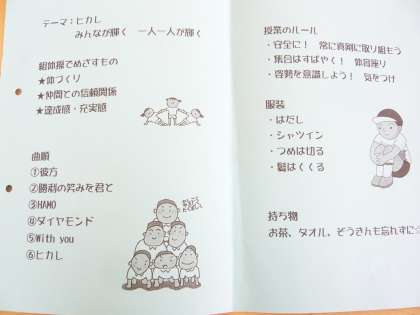 テーマ：ヒカレ
みんなが輝く　一人一人が輝く
組体操でめざすもの
★体づくり
★仲間との信頼関係
★達成感・充実感
曲順
①彼方
②勝利の笑みを君と
③HAMO
④ダイヤモンド
⑤With you
⑥ヒカレ
授業のルール
・安全に！　常に真剣に取り組もう
・集合はすばやく！　体育座り
・容姿を意識しよう！　気をつけ
服装
・はだし
・シャツイン
・つめは切る
・髪はくくる
持ち物
お茶、タオル、ぞうきんも忘れずに☆